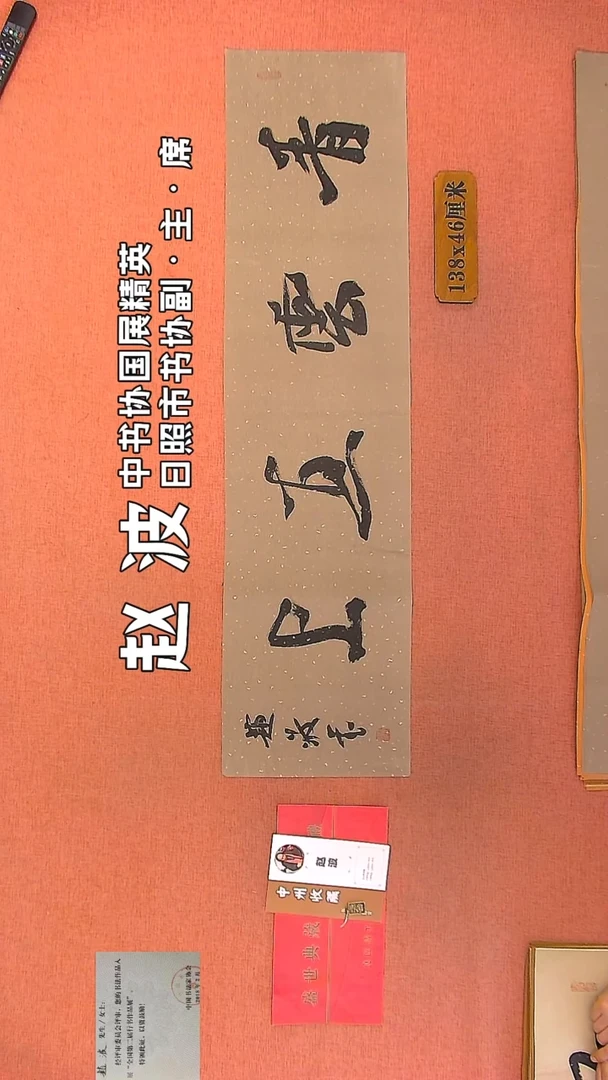 赵波
中书协国展精英
日照市书协副·主·席
青雲直上
趙波書
138x46厘米
赵波
中州收藏
盛世典藏
趙波 先生/女士:
经评审委员会评审,您的书法作品入
展“全国第二届行书作品展”,
特颁此证,以资鼓励!
中国书法家协会